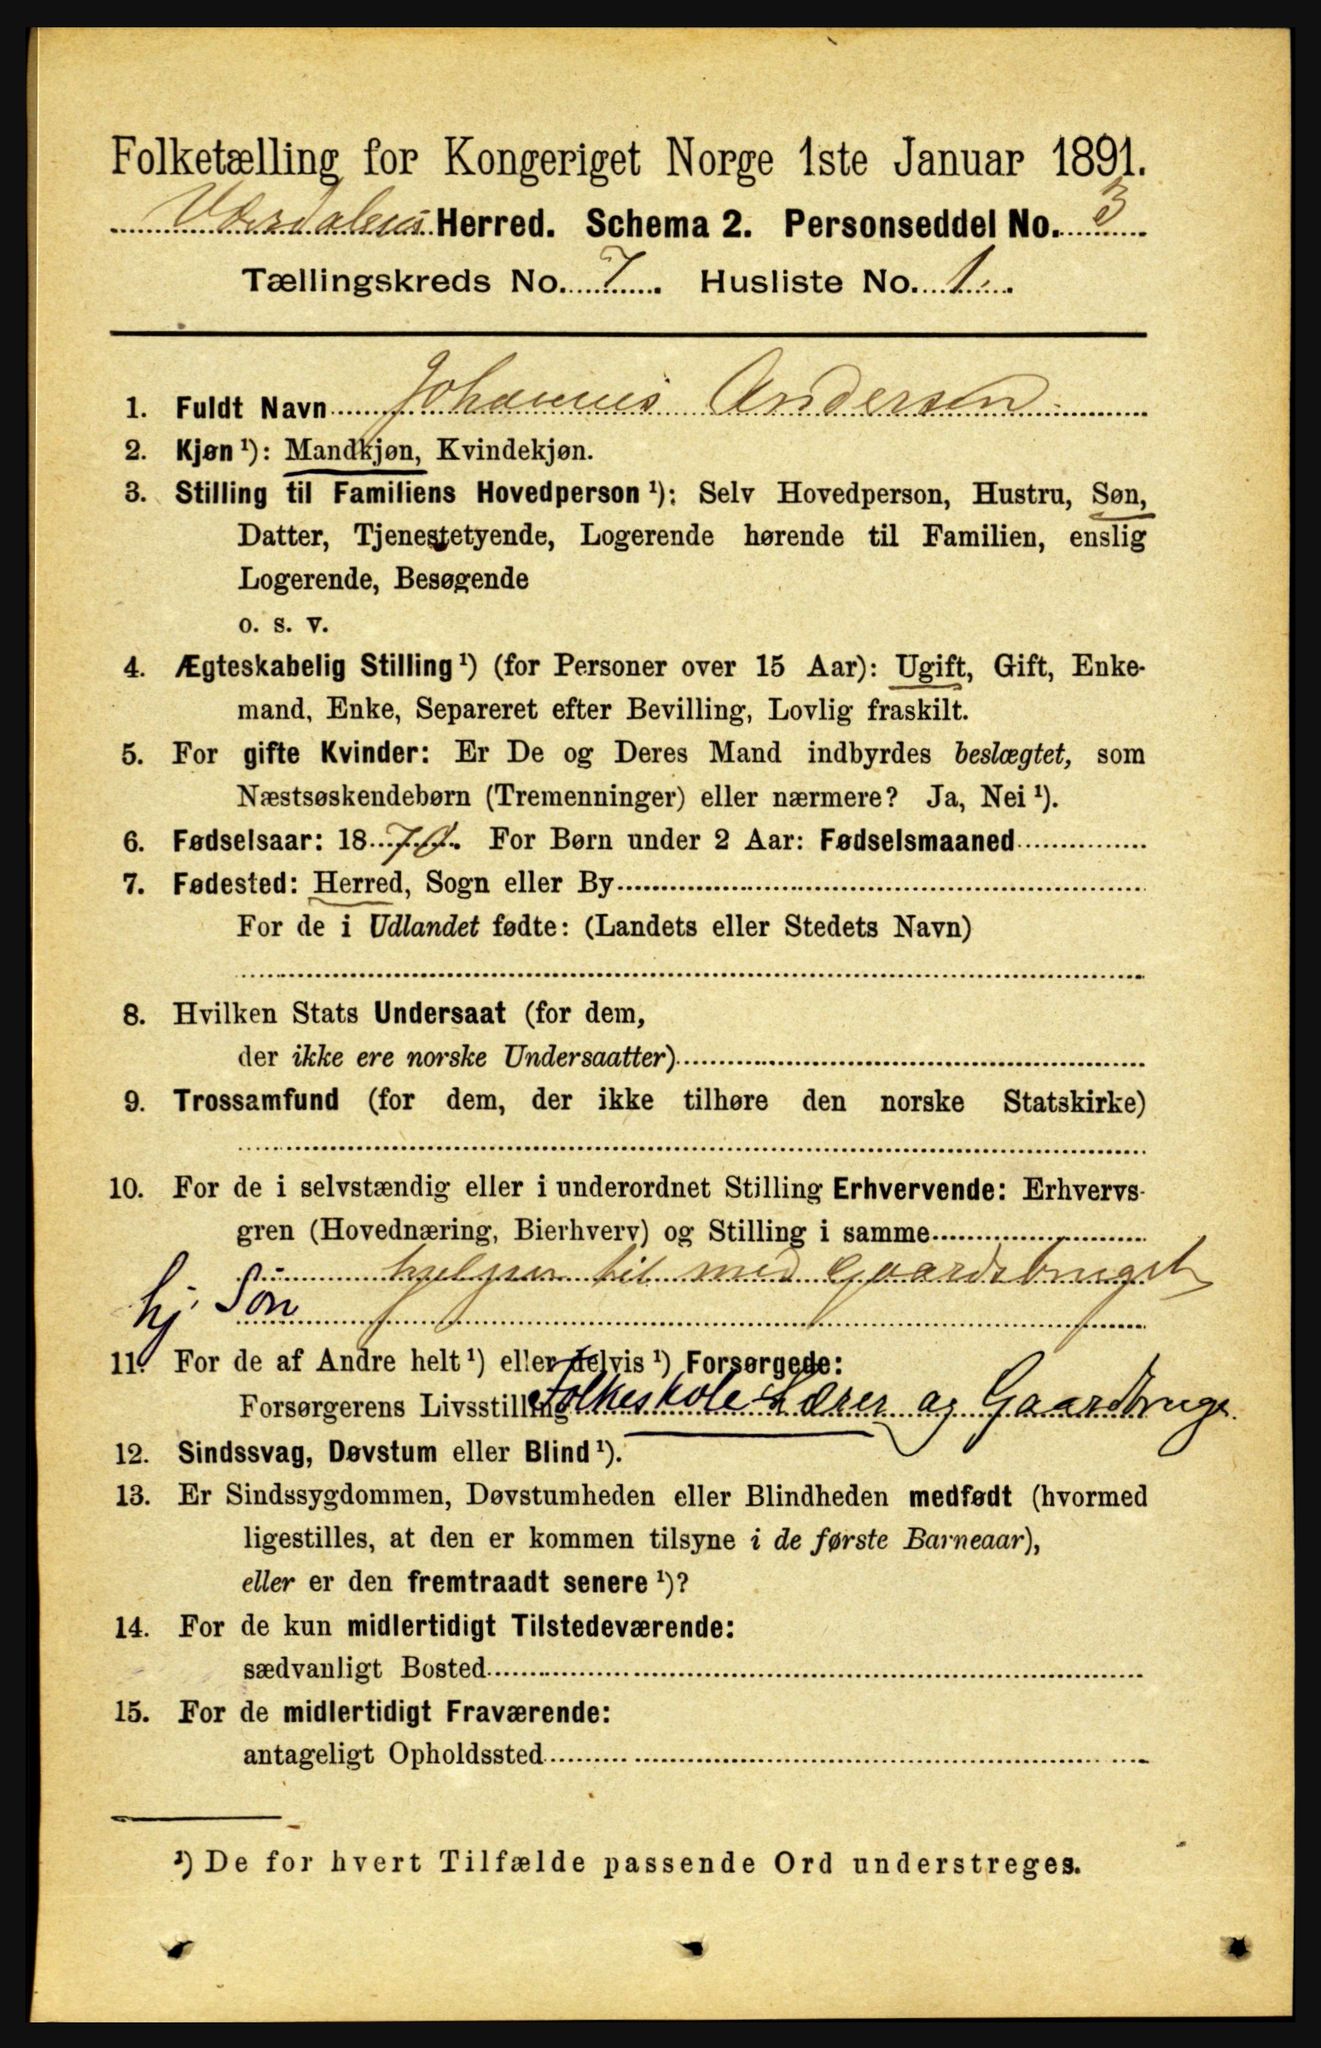 Folketælling for Kongeriget Norge 1ste Januar 1891.
Værdalens Herred. Schema 2. Personseddel No. 3
Tællingskreds No. 7. Husliste No. 1.
1. Fuldt Navn Johannes Andersen
2. Kjøn ¹): Mandkjøn, Kvindekjøn.
3. Stilling til Familiens Hovedperson ¹): Selv Hovedperson, Hustru, Søn,
Datter, Tjenestetyende, Logerende hørende til Familien, enslig
Logerende, Besøgende
o. s. v.
4. Ægteskabelig Stilling ¹) (for Personer over 15 Aar): Ugift, Gift, Enke-
mand, Enke, Separeret efter Bevilling, Lovlig fraskilt.
5. For gifte Kvinder: Er De og Deres Mand indbyrdes beslægtet, som
Næstsøskendebørn (Tremenninger) eller nærmere? Ja, Nei ¹).
6. Fødselsaar: 18 70. For Børn under 2 Aar: Fødselsmaaned
7. Fødested: Herred, Sogn eller By
For de i Udlandet fødte: (Landets eller Stedets Navn)
8. Hvilken Stats Undersaat (for dem,
der ikke ere norske Undersaatter)
9. Trossamfund (for dem, der ikke tilhøre den norske Statskirke)
10. For de i selvstændig eller i underordnet Stilling Erhvervende: Erhvervs-
gren (Hovednæring, Bierhverv) og Stilling i samme
hjelper til med Gaardsbruget
hj. Søn
11. For de af Andre helt ¹) eller delvis ¹) Forsørgede:
Forsørgerens Livsstilling Folkeskole Lærer og Gaardbruger
12. Sindssvag, Døvstum eller Blind ¹).
13. Er Sindssygdommen, Døvstumheden eller Blindheden medfødt (hvormed
ligestilles, at den er kommen tilsyne i de første Barneaar),
eller er den fremtraadt senere ¹)?
14. For de kun midlertidigt Tilstedeværende:
sædvanligt Bosted
15. For de midlertidigt Fraværende:
antageligt Opholdssted
¹) De for hvert Tilfælde passende Ord understreges.